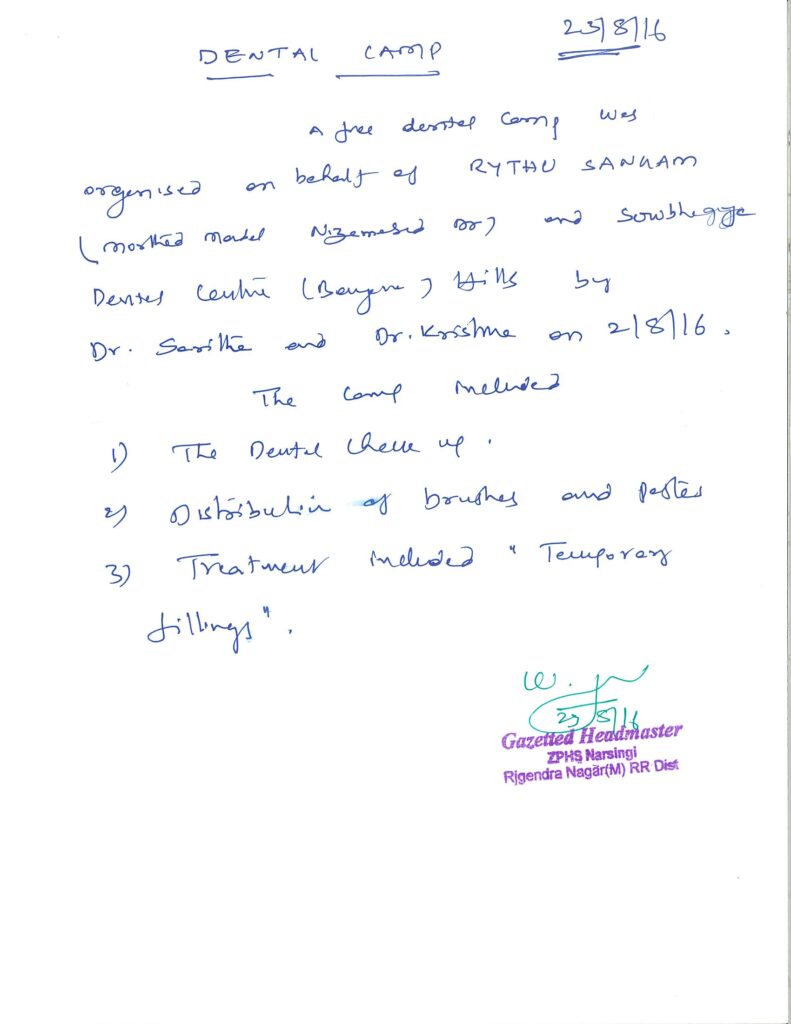 23/8/16
DENTAL CAMP
A free dental camp was
organised on behalf of RYTHU SANGAM
(Mortad Mandal Nizamabad Dr) and Sowbhagya
Dental Centre (Banjara) Hills by
Dr. Saritha and Dr. Krishna on 2/8/16.
The camp included
1) The Dental Check up.
2) Distribution of brushes and pastes
3) Treatment included "Temporary
fillings".
23/8/16
Gazetted Headmaster
ZPHS Narsingi
Rjgendra Nagar(M) RR Dist